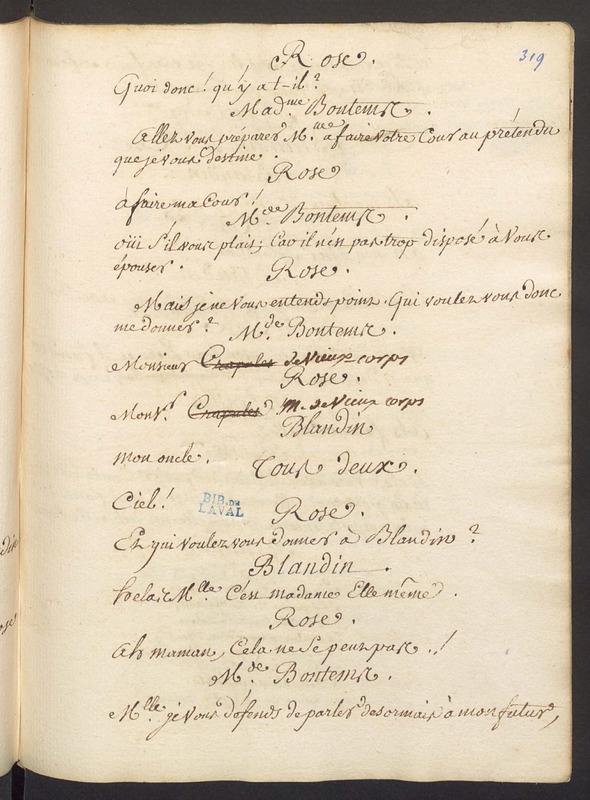 319
Rose.
Quoi donc! qu'y a t-il?
Mad.me Bontems.
Allez vous préparer M.lle a faire votre Cour au prétendu
que je vous destine.
Rose
à faire ma Cour!
M.de Bontems.
oüi s'il vous plait; Car il n'en pas trop disposé à vous
épouser.
Rose.
Mais je ne vous entends point. Qui voulez vous donc
me donner?
M.de Bontems.
Monsieur Crapules de Vieux corps
Rose.
Mons.r Crapules M. de Vieux corps
Blandin
mon oncle.
Tous deux.
Ciel!
BIB. DE
LAVAL
Rose.
Et qui voulez vous donner à Blandin?
Blandin.
helas M.lle C'est madame Elle même.
Rose.
Ah maman, Cela ne se peut pas..!
M.de Bontems.
M.lle je vous défends de parler desormais à mon futur,